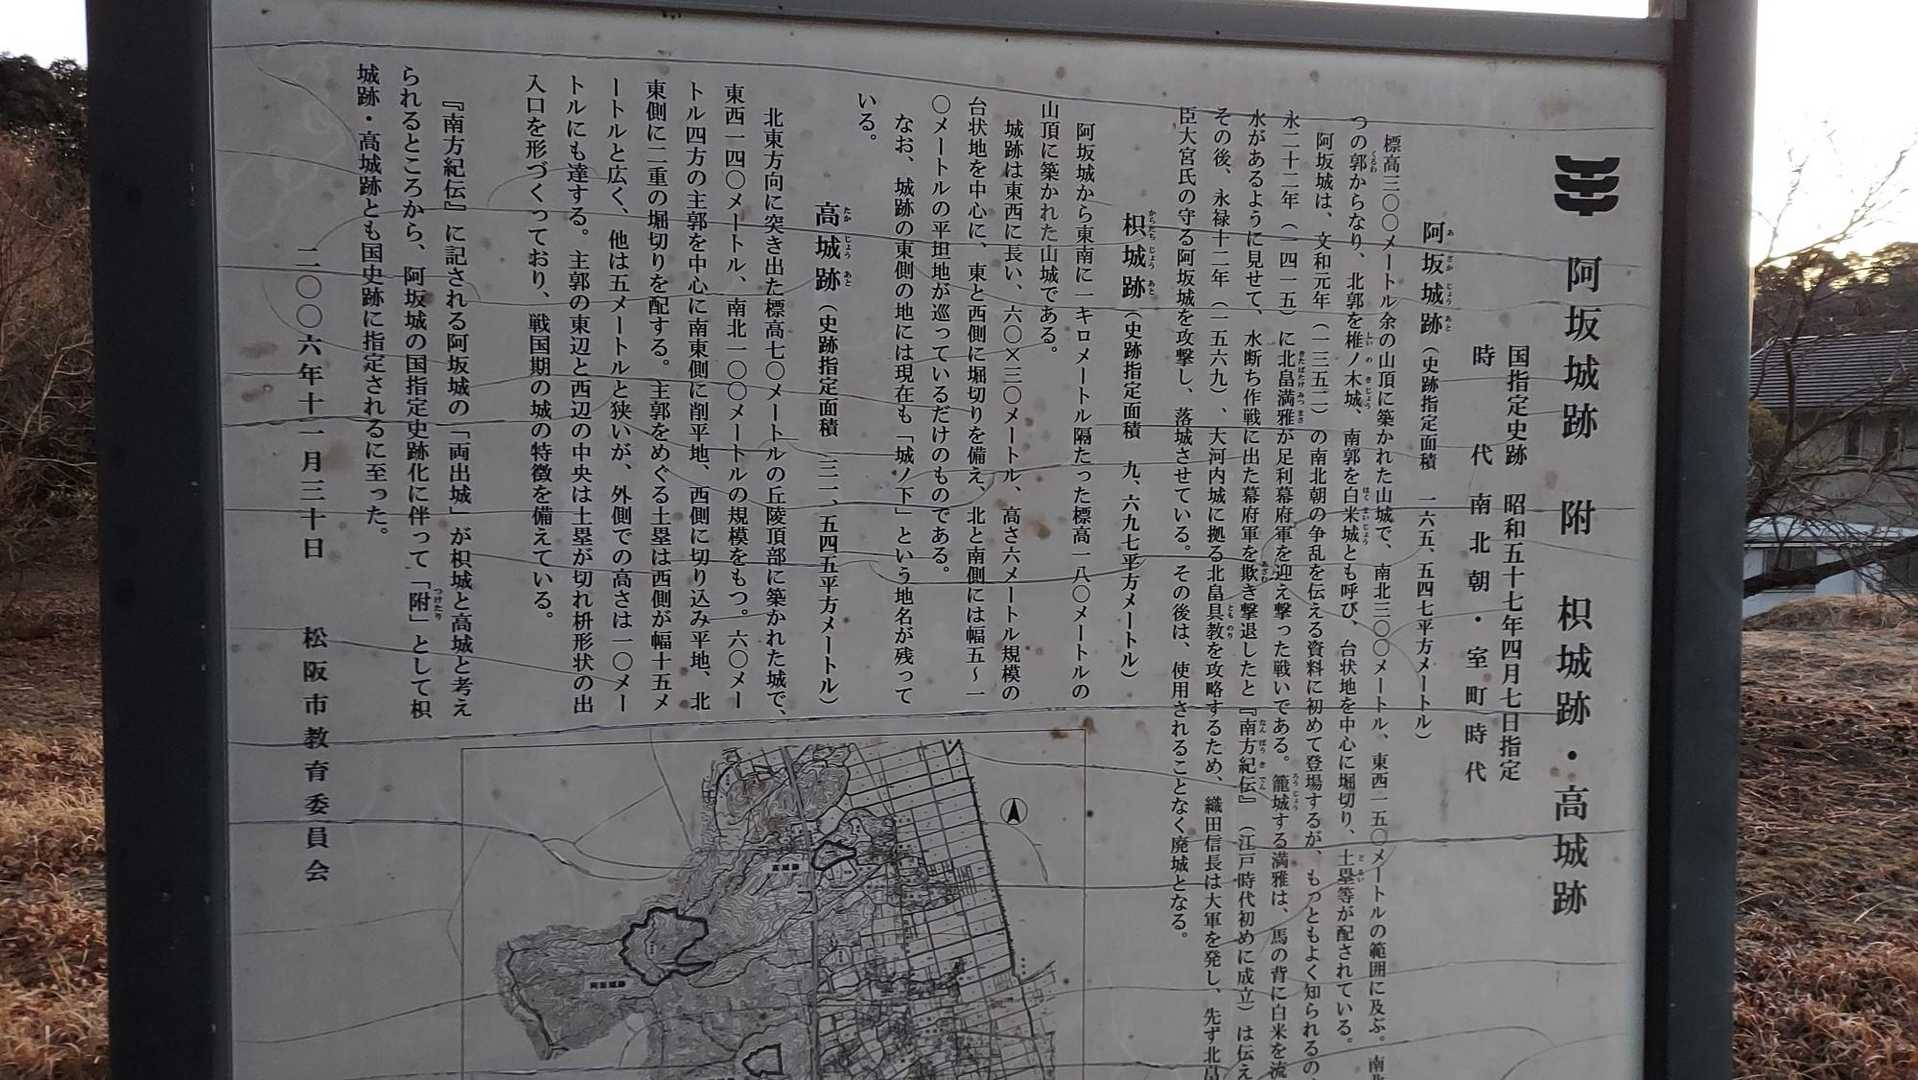 阿坂城跡 附 枳城跡・高城跡
国指定史跡 昭和五十七年四月七日指定
時代 南北朝・室町時代
阿坂城跡（史跡指定面積 一六五、五四七平方メートル）
あ ざか じょう あと
標高三〇〇メートル余の山頂に築かれた山城で、南北三〇〇メートル、東西一五〇メートルの範囲に及ぶ。南北
つの郭からなり、北郭を椎ノ木城、南郭を白米城とも呼び、台状地を中心に堀切り、土塁等が配されている。
くるわ しい の き じょう はく まいじょう ど るい
阿坂城は、文和元年（一三五二）の南北朝の争乱を伝える資料に初めて登場するが、もっともよく知られるの
永二十二年（一四一五）に北畠満雅が足利幕府軍を迎え撃った戦いである。籠城する満雅は、馬の背に白米を流
きたばたけ みつ まさ ろうじょう
水があるように見せて、水断ち作戦に出た幕府軍を欺き撃退したと『南方紀伝』（江戸時代初めに成立）は伝え
あざむ なん ぽう き でん
その後、永禄十二年（一五六九）、大河内城に拠る北畠具教を攻略するため、織田信長は大軍を発し、先ず北畠
とも のり
臣大宮氏の守る阿坂城を攻撃し、落城させている。その後は、使用されることなく廃城となる。
枳城跡（史跡指定面積 九、六九七平方メートル）
からたち じょう あと
阿坂城から東南に一キロメートル隔たった標高一八〇メートルの
山頂に築かれた山城である。
城跡は東西に長い、六〇×三〇メートル、高さ六メートル規模の
台状地を中心に、東と西側に堀切りを備え、北と南側には幅五～一
〇メートルの平坦地が巡っているだけのものである。
なお、城跡の東側の地には現在も「城ノ下」という地名が残って
いる。
高城跡（史跡指定面積 二二、五四五平方メートル）
たか じょう あと
北東方向に突き出た標高七〇メートルの丘陵頂部に築かれた城で、
東西一四〇メートル、南北一〇〇メートルの規模をもつ。六〇メー
トル四方の主郭を中心に南東側に削平地、西側に切り込み平地、北
東側に二重の堀切りを配する。主郭をめぐる土塁は西側が幅十五メ
ートルと広く、他は五メートルと狭いが、外側での高さは一〇メー
トルにも達する。主郭の東辺と西辺の中央は土塁が切れ枡形状の出
入口を形づくっており、戦国期の城の特徴を備えている。
『南方紀伝』に記される阿坂城の「両出城」が枳城と高城と考え
られるところから、阿坂城の国指定史跡化に伴って「附」として枳
つけたり
城跡・高城跡とも国史跡に指定されるに至った。
二〇〇六年十一月三十日 松阪市教育委員会
高城跡
阿坂城跡